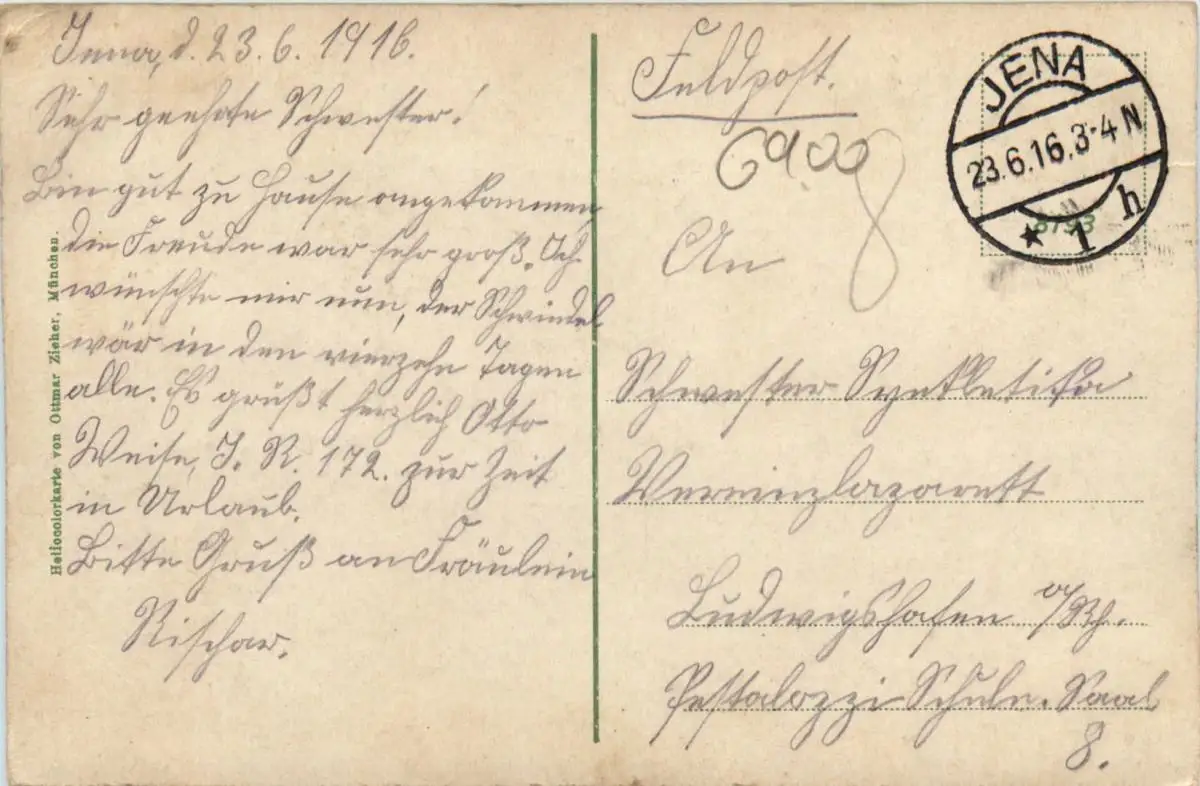 Jena, d. 23.6.1916.
Sehr geehrte Schwester!
Bin gut zu Hause angekommen,
die Freude war sehr groß. Ich
wünschte mir nun, der Schwindel
wär in den vierzehn Tagen
alle. Es grüßt herzlich Otto
Weise, I. R. 172. zur Zeit
in Urlaub.
Bitte Gruß an Fräulein
Rischar.
Heliocolorkarte von Ottmar Zieher, München.
Feldpost.
69.00
8
JENA
23.6.16.3-4 N
* 1 h
8793
An
Schwester Synkletika
Vereinzlazarett
Ludwigshafen a/Rh.
Pestalozzi Schule. Saal
8.